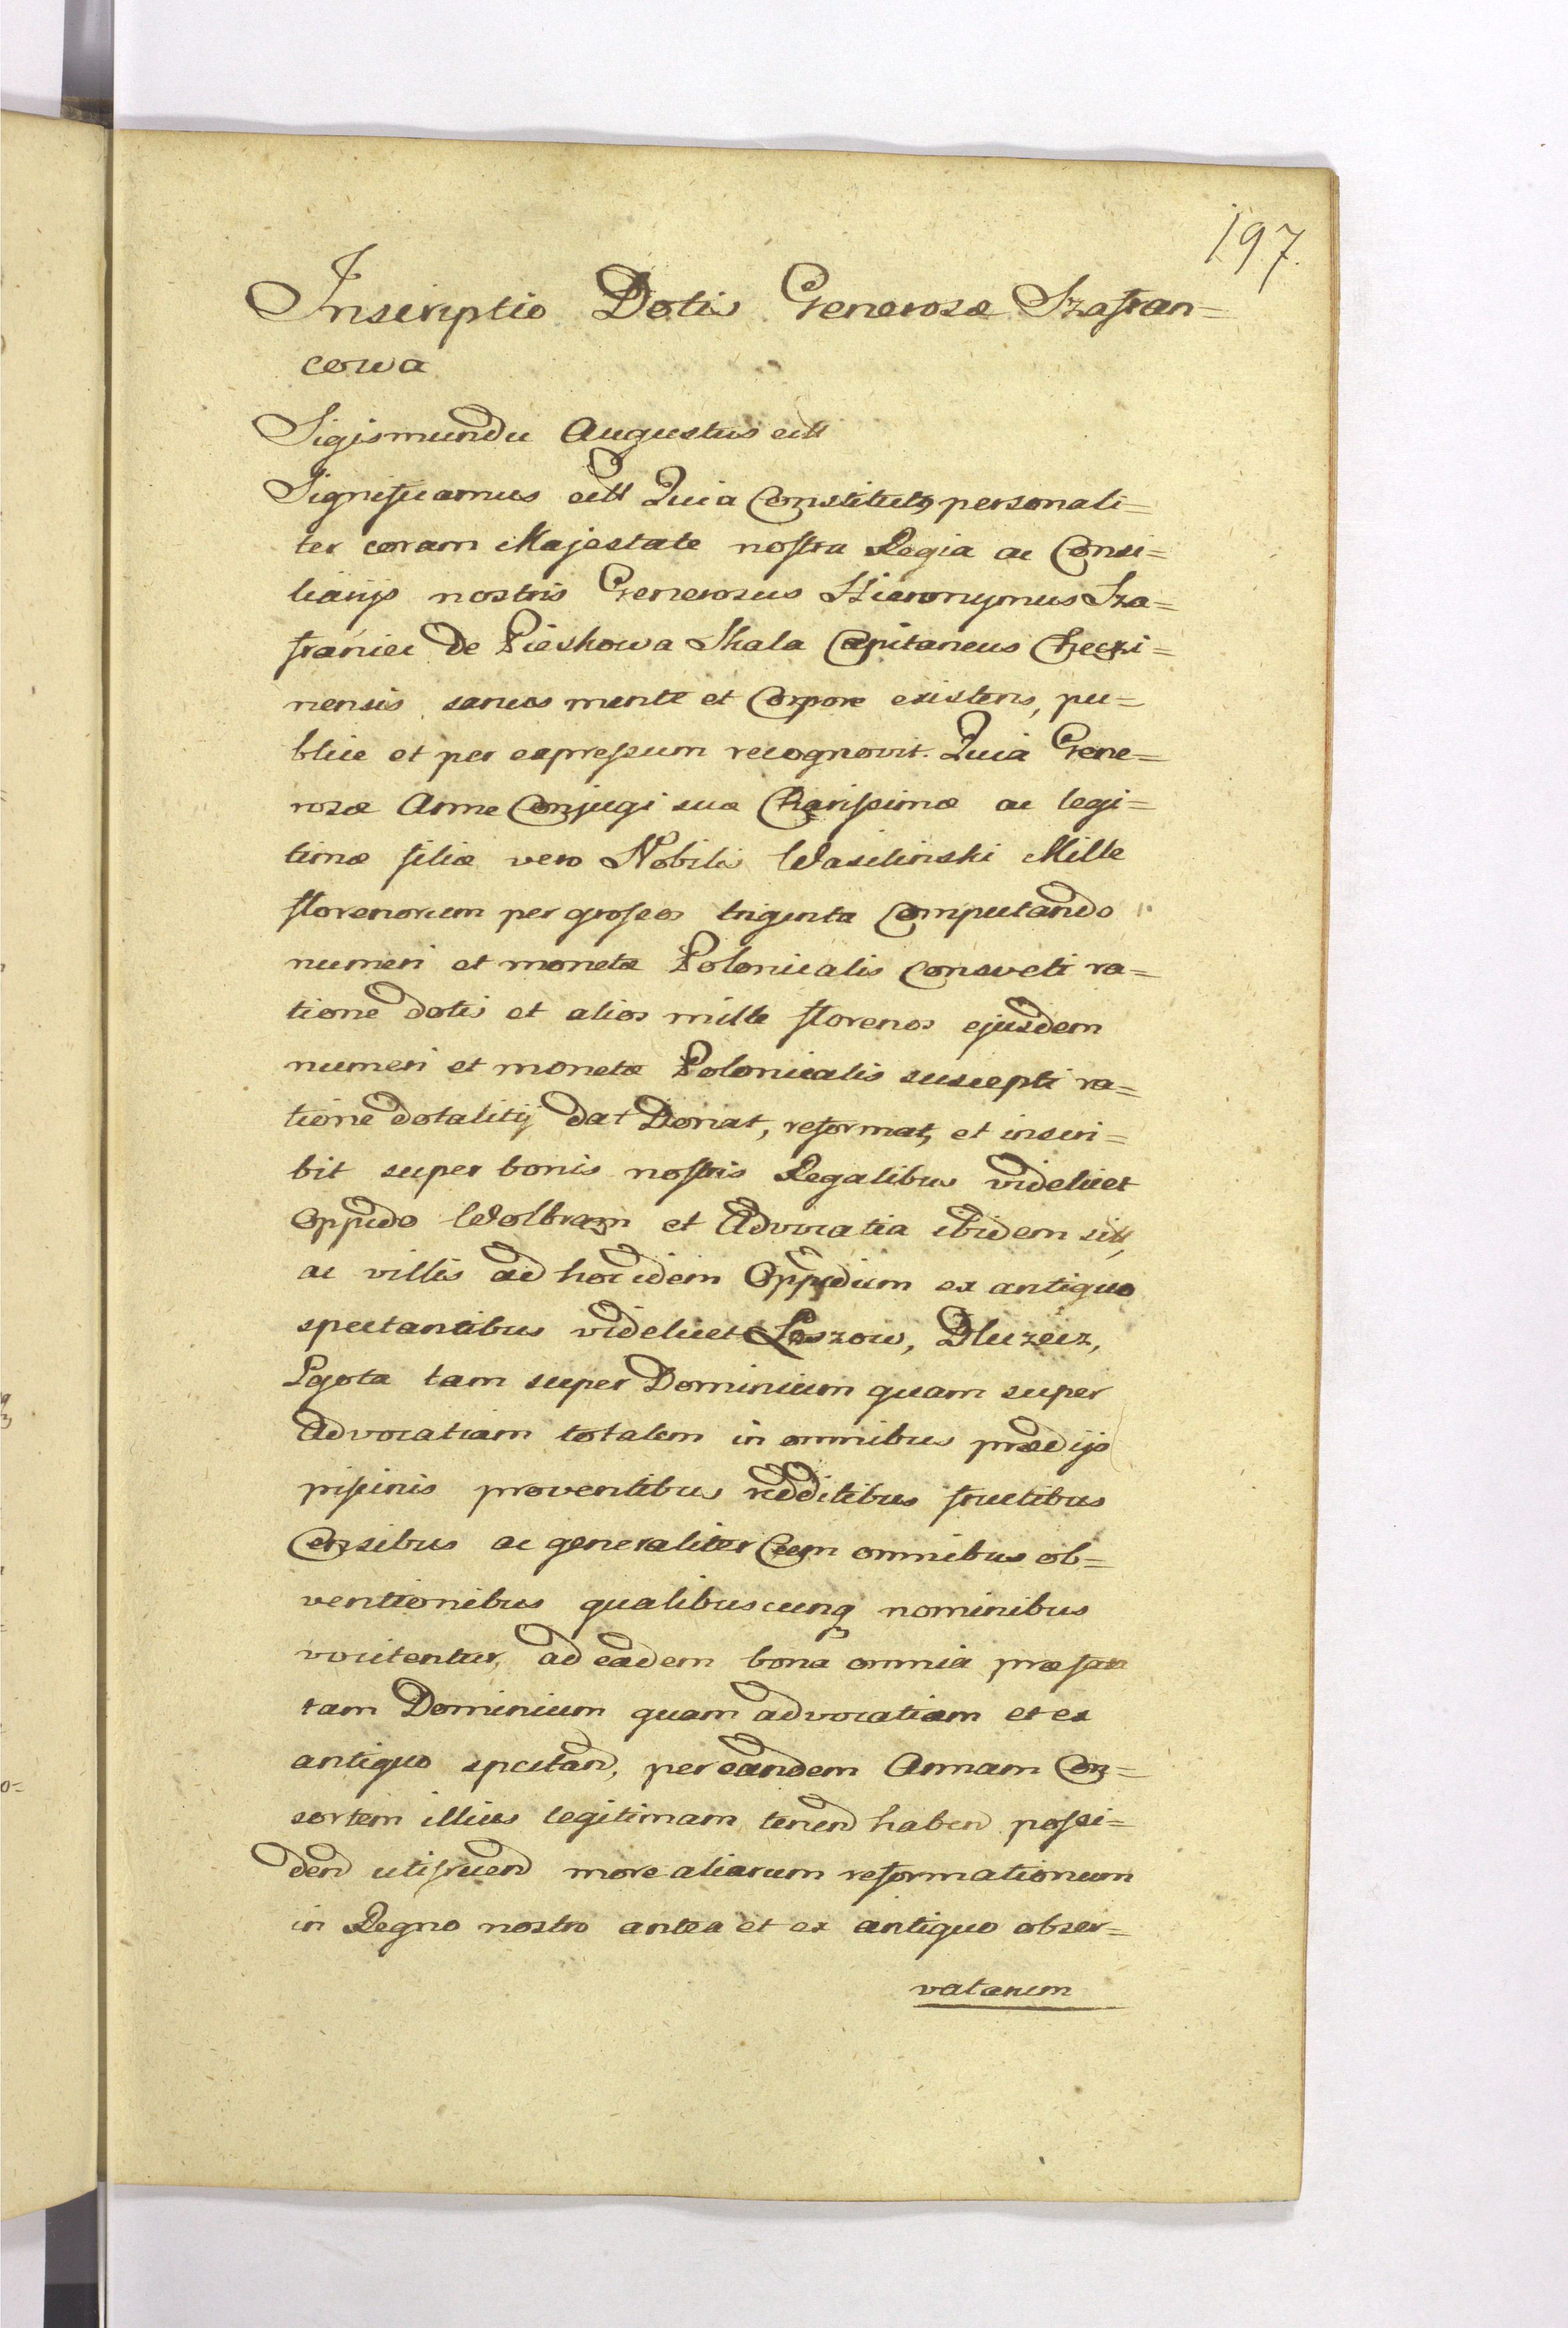 197.
Inscriptio Dotis Generosæ Szafran=
cowa
Sigismundu Augustus ett
Significamus ett Quia Constitutq personali=
ter coram Majestate nostra Regia ac Consi=
liarijs nostris Generosus Hieronymus Sza=
franiec De Pieskowa Skala Capitaneus Checzi=
nensis sanus mente et Corpore existens, pu=
blice et per expressum recognovit. Quia Gene=
rosæ Anne Conjugi suæ Charissimæ ac legi=
timæ filiæ vero Nobilis Wasilinski Mille
florenorum per grossos triginta Computando
numeri et monetæ Polonicalis Consveti ra=
tione dotis et alios mille florenos ejusdem
numeri et monetæ Polonicalis suscepti ra=
tione dotalitij dat Donat, reformat, et inscri=
bit super bonis nostris Regalibus videlicet
Oppido Wolbram et Advocatia ibidem sitt,
ac villis ad hoc idem Oppidum ex antiquo
spectantibus videlicet Laszow, Dluzecz,
Lgota tam super Dominium quam super
Advocatiam totalem in omnibus prædijs
piscinis proventibus redditibus fructibus
Censibus ac generaliter Cum omnibus ob=
ventionibus qualibuscunq nominibus
vocitentur, ad eadem bona omnia præfata
tam Dominium quam advocatiam et ex
antiquo spectand, per eandem Annam Con=
sortem illius legitimam tenend habend possi=
dend utifruend more aliarum reformationum
in Regno nostro antea et ex antiquo obser=
vatarum